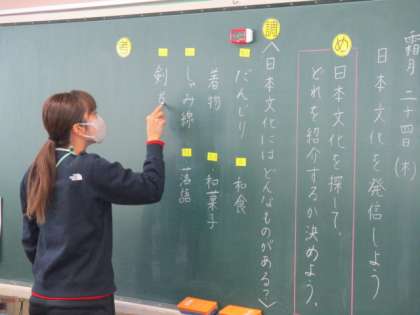 霜月 二十四(木)
日本文化を発信しよう
め
日本文化を探して、
どれを紹介するか決めよう。
調
〈日本文化にはどんなものがある?〉
だんじり
和食
着物
和菓子
しゃみ線
落語
剣
考